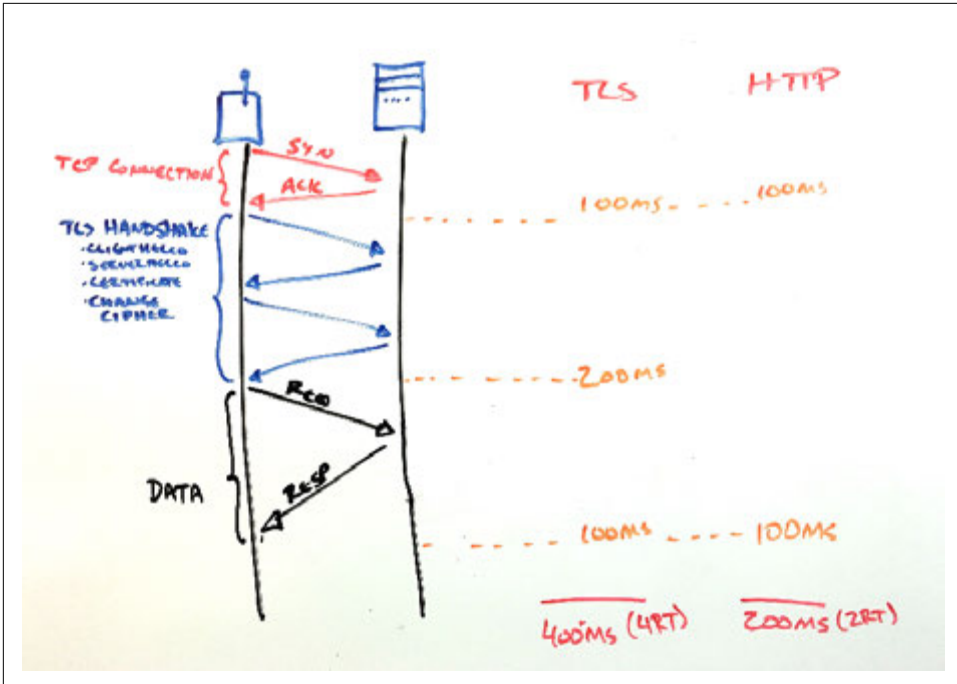 TLS HTTP
SYN
TCP CONNECTION
ACK
100MS 100MS
TLS HANDSHAKE
·CLIENTHELLO
·SERVERHELLO
·CERTIFICATE
·CHANGE
CIPHER
200MS
REQ
DATA
RESP
100MS 100MS
400MS (4RT) 200MS (2RT)